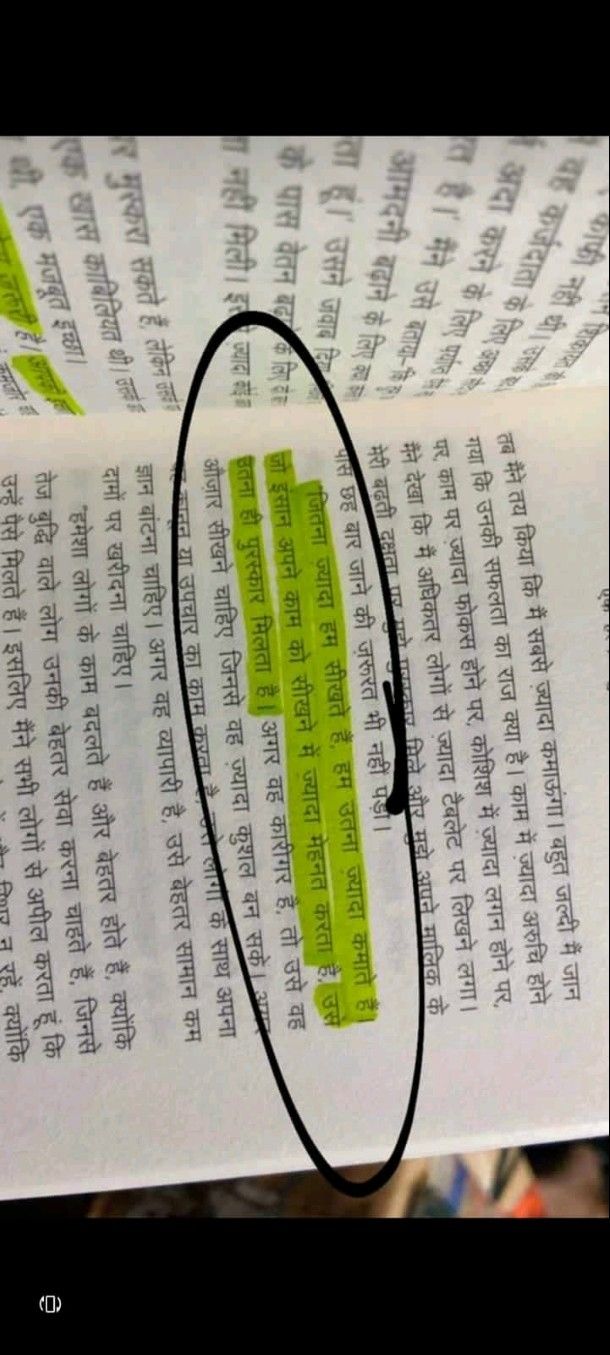 काफी नहीं थी।
वह कर्जदाता के लिए
अदा करने के लिए
है।' मैंने उसे बताया-
आमदनी बढ़ाने के लिए
हूं।' उसने जवाब दिया
के पास वेतन के लिए
नहीं मिली।
मुस्करा सकते हैं, लेकिन
एक खास काबिलियत थी।
थी, एक मजबूत इच्छा।
तब मैंने तय किया कि मैं सबसे ज़्यादा कमाऊंगा। बहुत जल्दी मैं जान
गया कि उनकी सफलता का राज क्या है। काम में ज़्यादा अरुचि होने
पर, काम पर ज़्यादा फोकस होने पर, कोशिश में ज़्यादा लगन होने पर,
मैंने देखा कि मैं अधिकतर लोगों से ज़्यादा टैबलेट पर लिखने लगा।
मेरी बढ़ती दक्षता पर मुझे पुरस्कार मिले और मुझे अपने मालिक के
पास छह बार जाने की ज़रूरत भी नहीं पड़ी।
जितना ज्यादा हम सीखते हैं, हम उतना ज़्यादा कमाते हैं।
जो इंसान अपने काम को सीखने में ज़्यादा मेहनत करता है, उसे
उतना ही पुरस्कार मिलता है। अगर वह कारीगर है, तो उसे वह
औज़ार सीखने चाहिए, जिनसे वह ज़्यादा कुशल बन सके। अगर
वह कानून या उपचार का काम करता है, उसे लोगों के साथ अपना
ज्ञान बांटना चाहिए। अगर वह व्यापारी है, उसे बेहतर सामान कम
दामों पर खरीदना चाहिए।
'हमेशा लोगों के काम बदलते हैं और बेहतर होते हैं, क्योंकि
तेज बुद्धि वाले लोग उनकी बेहतर सेवा करना चाहते हैं, जिनसे
उन्हें पैसे मिलते हैं। इसलिए मैंने सभी लोगों से अपील करता हूं कि
न रहें, क्योंकि